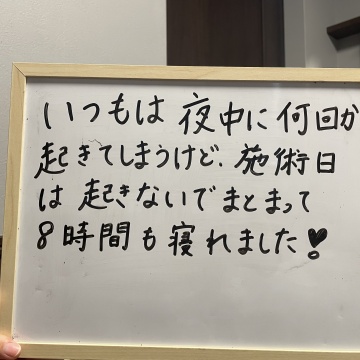 いつもは夜中に何回か
起きてしまうけど、施術日
は起きないでまとまって
8時間も寝れました♥!